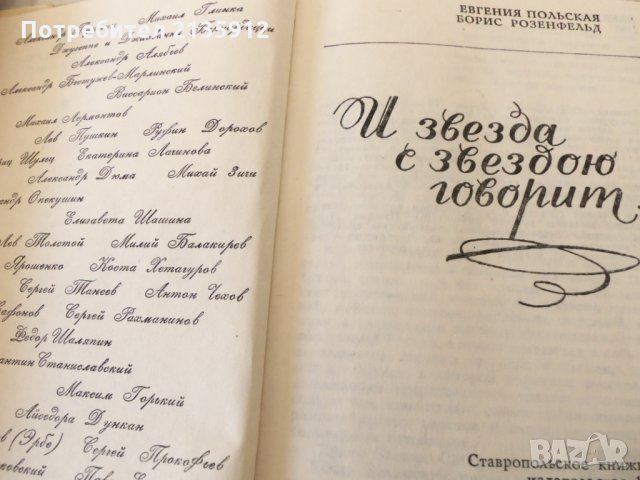 Потребител 2135912
Михаил Глинка
Александр Алябьев
Александр Бестужев-Марлинский
Виссарион Белинский
Михаил Лермонтов
Лев Пушкин Руфин Дорохов
Шульц Екатерина Лачинова
Александр Дюма Михай Зичи
Опекушин
Елизавета Шашина
Лев Толстой Милий Балакирев
Ярошенко Коста Хетагуров
Сергей Танеев Антон Чехов
Сафонов Сергей Рахманинов
Федор Шаляпин
Станиславский
Максим Горький
Айседора Дункан
(Эрбе) Сергей Прокофьев
ЕВГЕНИЯ ПОЛЬСКАЯ
БОРИС РОЗЕНФЕЛЬД
И звезда
с звездою
говорит
Ставропольское
BAZAR